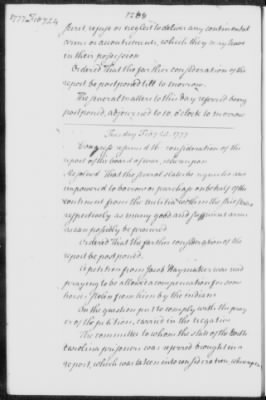 1777 Feb 24
1268
secret, refuse or neglect to deliver any continental
arms or accoutrements, which they may have
in their possession
Ordered That the farther consideration of the
report be postponed till to morrow.
The several matters to this day referred being
postponed, adjourned to 10 o'Clock to morrow
Tuesday Feby 25. 1777
Congress resumed the consideration of the
report of the board of war, whereupon
Resolved That the several states be requested &
impowered to borrow or purchase on behalf of the
continent from the militia within the said states
respectively as many good and sufficient arms
as can possibly be procured.
Ordered That the farther consideration of the
report be postponed.
A petition from Jacob Haymaker was read
praying to be allowed a compensation for some
horses stolen from him by the indians
On the question put to comply with the pray
er of the petition, carried in the negative
The committee to whom the state of the
carolina prisoners was referred brought in a
report, which was taken into consideration, whereupon